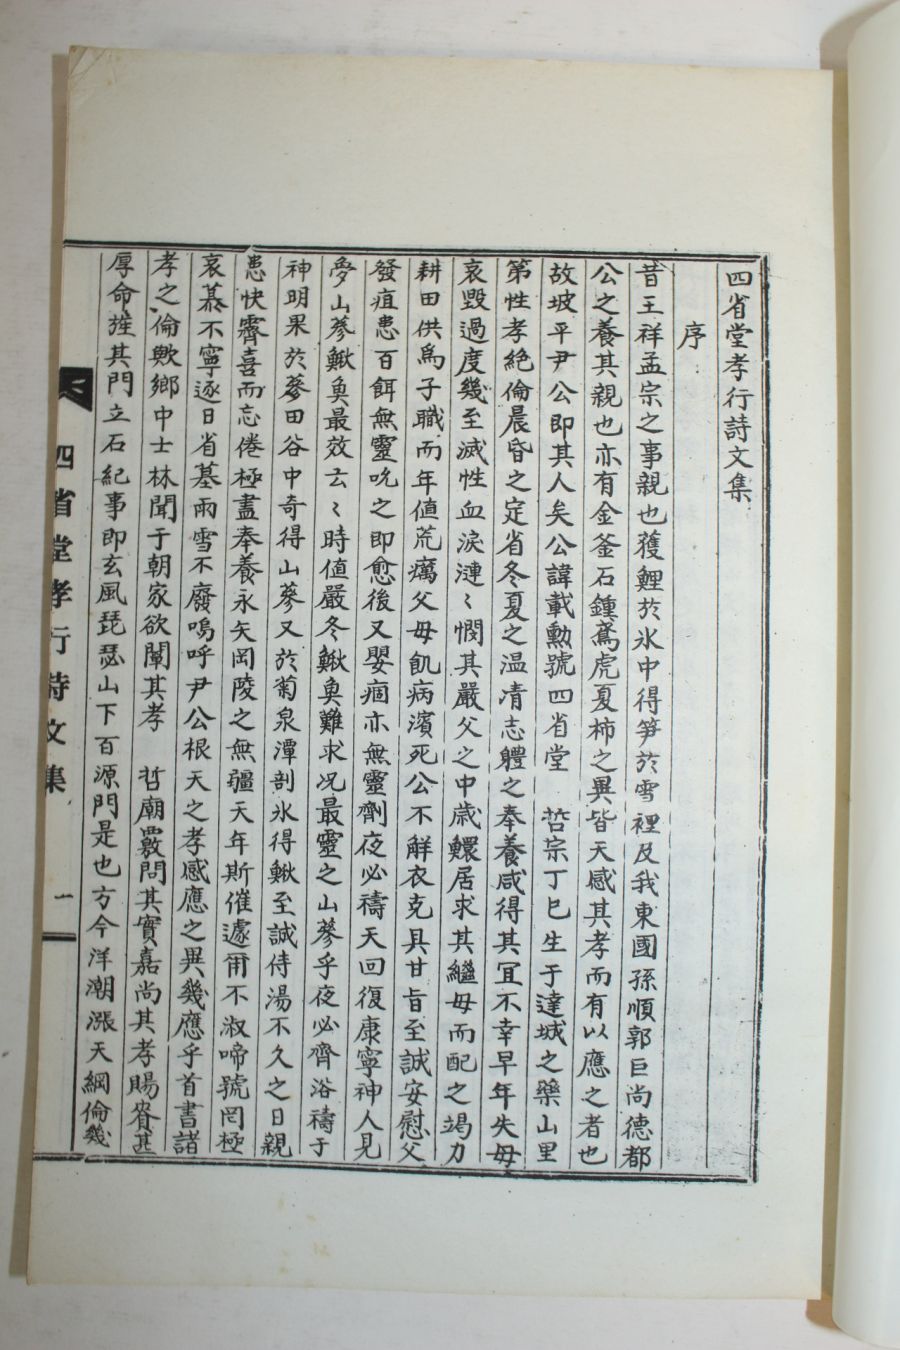 四省堂孝行詩文集
序
昔王祥孟宗之事親也獲鯉於氷中得笋於雪裡及我東國孫順郭巨尚德都
公之養其親也亦有金釜石鍾鳶虎夏柿之異皆天感其孝而有以應之者也
故坡平尹公即其人矣公諱載勲號四省堂 哲宗丁巳生于達城之藥山里
第性孝絶倫晨昏之定省冬夏之温凊志軆之奉養咸得其冝不幸早年失毋
哀毀過度幾至滅性血淚漣〻憫其嚴父之中歳鰥居求其繼毋而配之竭力
耕田供爲子職而年値荒癘父毋飢病濱死公不觧衣克具甘旨至誠安慰父
發疽患百餌無靈吮之即愈後又嬰痼亦無靈劑夜必禱天回復康寧神人見
夢山蔘鰍魚最效云〻時値嚴冬鰍魚難求况最靈之山蔘乎夜必齊浴禱于
神明果於蔘田谷中奇得山蔘又於菊泉潭剖氷得鰍至誠侍湯不久之日親
患快霽喜而忘倦極盡奉養永矢岡陵之無疆天年斯催遽爾不淑啼號罔極
哀慕不寧逐日省墓雨雪不廢嗚呼尹公根天之孝感應之異幾應乎首書諸
孝之倫歟鄉中士林聞于朝家欲闡其孝 哲廟覈問其實嘉尚其孝賜賚甚
厚命旌其門立石紀事即玄風琵瑟山下百源門是也方今洋潮漲天綱倫幾
四省堂孝行詩文集 一